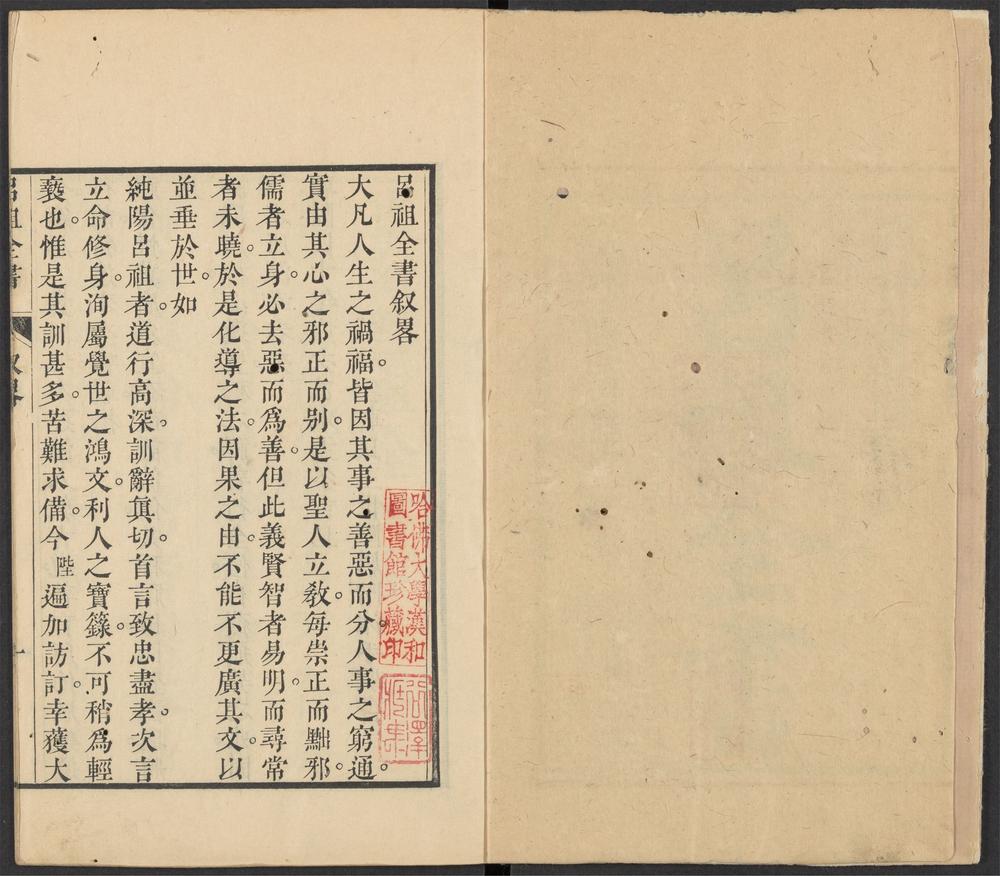 呂祖全書叙畧
大凡人生之禍福。皆因其事之善惡而分。人事之窮通。
實由其心之邪正而别。是以聖人立敎。每崇正而黜邪。
儒者立身。必去惡而爲善。但此義賢智者易明。而尋常
者未曉。於是化導之法。因果之由。不能不更廣其文。以
並垂於世。如
純陽呂祖者。道行高深。訓辭眞切。首言致忠盡孝。次言
立命修身。洵屬覺世之鴻文。利人之寶籙。不可稍爲輕
褻也。惟是其訓甚多。苦難求備。今陛遍加訪訂。幸獲大
呂祖全書
叙畧
一
哈佛大學漢和
圖書館珍藏印